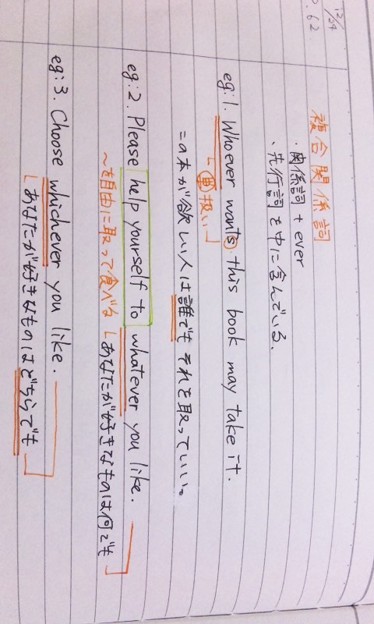 12/24
P.62
複合関係詞
・関係詞 + ever
、先行詞を中に含んでいる.
eg:1. Whoever wants this book may take it.
単扱い
この本が欲しい人は誰でもそれを取っていい。
eg:2. Please help yourself to whatever you like.
〜を自由に取って食べる あなたが好きなものは何でも
eg:3. Choose whichever you like.
あなたが好きなものはどちらでも